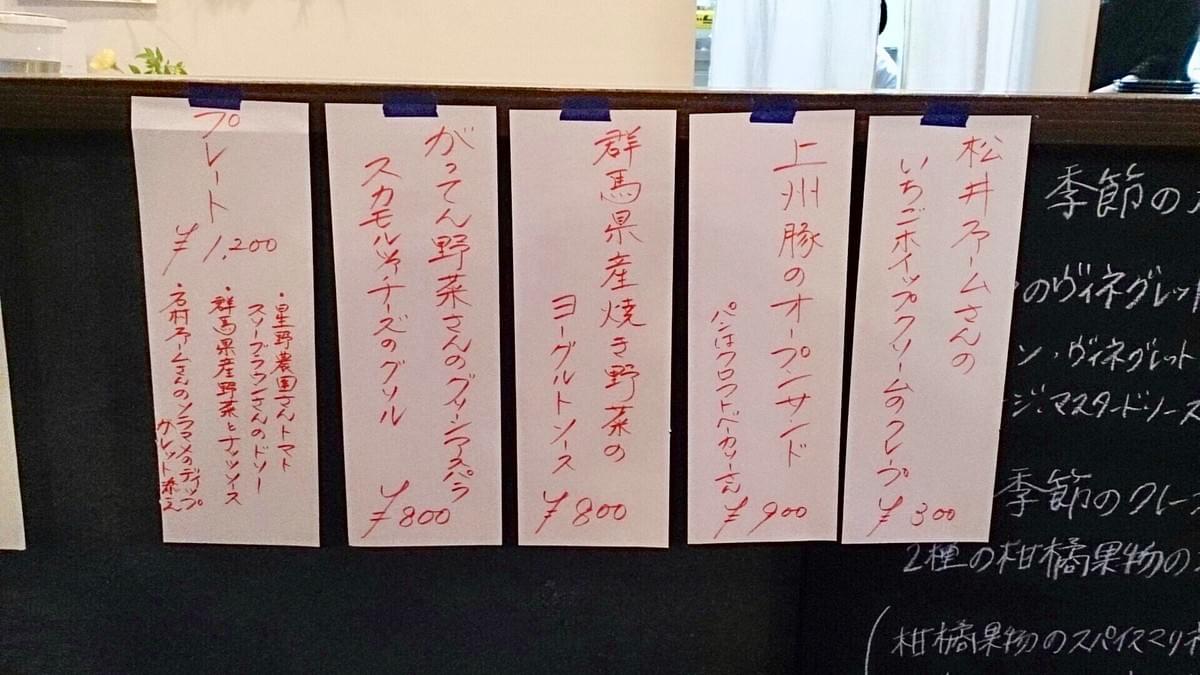 松井ファームさんの
いちごホイップクリームのクレープ
¥300
上州豚のオープンサンド
パンはクロフトベーカリーさん
¥900
群馬県産焼き野菜の
ヨーグルトソース
¥800
がってん野菜さんのグリーンアスパラ
スカモルツァチーズのグリル
¥800
プレート
¥1,200
・星野農園さんトマト
スリーブラウンさんのドリー
・群馬県産野菜とナッツソース
・石村ファームさんのソラマメのディップ
ガレット添え
季節の
のヴィネグレット
ン・ヴィネグレット
ジ・マスタードソース
季節のクレー
2種の柑橘果物の
(柑橘果物のスパイスマリネ